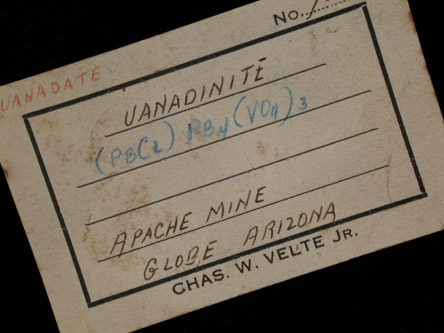 No. 1
VANADATE
VANADINITE
(PBCl) PB4 (VO4)3
APACHE MINE
GLOBE ARIZONA
CHAS. W. VELTE JR.